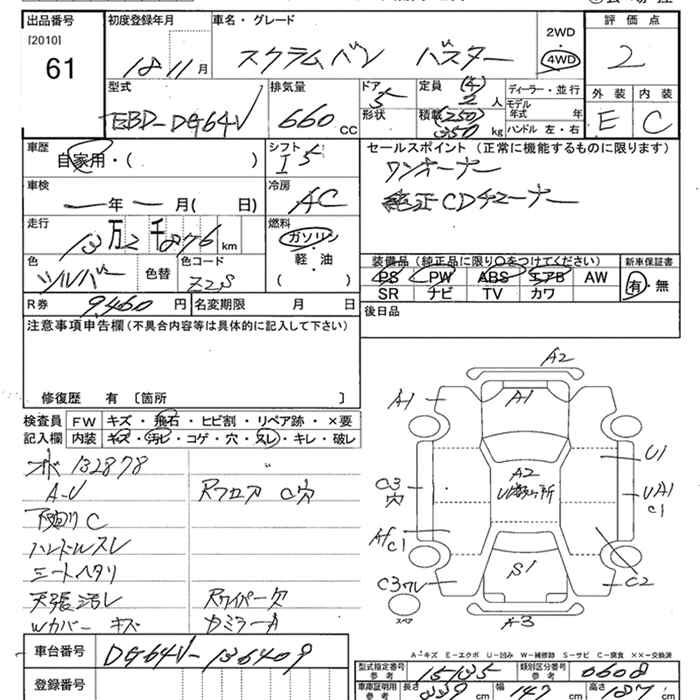 出品番号 [2010] 61
初度登録年月 18 11 月
車名・グレード スクラムバン バスター
2WD・4WD
評価点 2
外装 E 内装 C
型式 EBD-DG64V
排気量 660 cc
ドア 5 形状
定員 (4) 2 人
積載 (250) 350 kg
ディーラー・並行
モデル年式 年
ハンドル 左・右
車歴 自家用・( )
シフト I5
セールスポイント(正常に機能するものに限ります)
ワンオーナー
純正CDチューナー
車検 ー年ー月( 日)
冷房 AC
走行 13万2千876km
燃料 ガソリン・軽・油 ( )
色 シルバー 色替 色コード Z2S
装備品(純正品に限り〇をつけてください) 新車保証書
PS PW ABS エアB AW 有・無
SR ナビ TV カワ
R券 9,460 円 名変期限 月 日
後日品
注意事項申告欄(不具合内容等は具体的に記入して下さい)
修復歴 有 〔箇所 〕
検査員記入欄 FW キズ・飛石・ヒビ割・リペア跡・×要
内装 キズ・汚レ・コゲ・穴・スレ・キレ・破レ
132878
A-U Rフロア C穴
下回リC
ハンドルスレ
シートヘタリ
天張汚レ Rワイパー欠
Wカバー キズ カミラーA
A2
A1 A1
U1
C3穴 A2 UA1 C1
C1
S1
C3ワレ C2
スペア A-3
A-キズ E-エクボ U-凹み W-補修跡 S-サビ C-腐食 ××-交換済
車台番号 DG64V-136409
型式指定番号 参考 15135 類別区分番号 参考 0608
登録番号
車庫証明用 参考 長さ 339 cm 幅 147 cm 高さ 187 cm